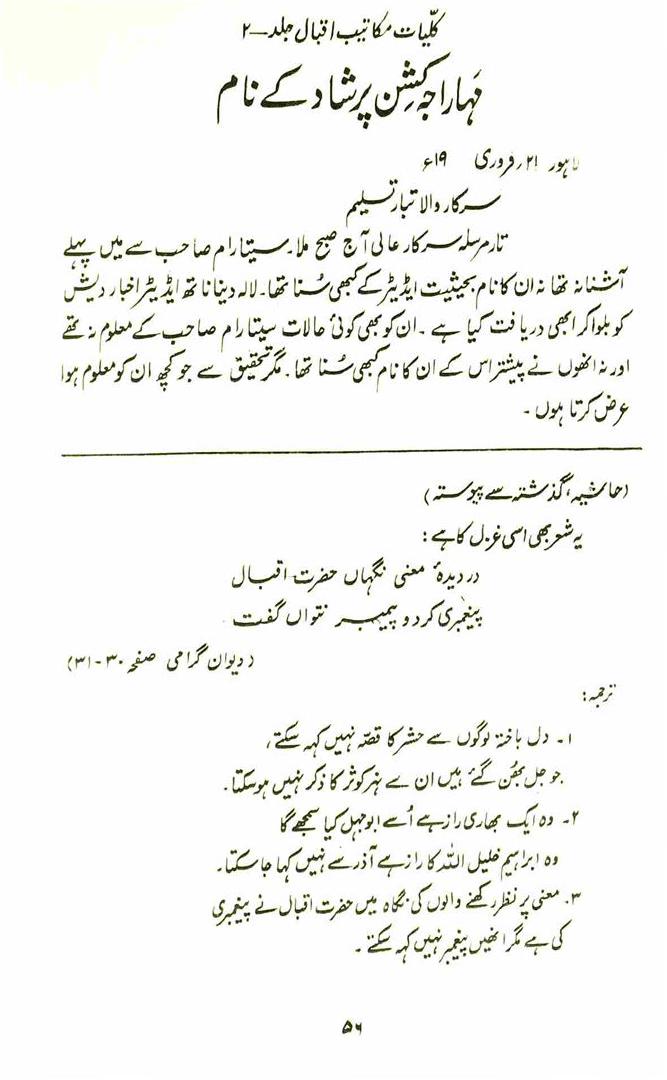 کلّیات مکاتیب اقبال جلد ۔۲
مہاراجہ کشن پرشاد کے نام
لاہور ۲۱؍فروری ۱۹ء
سرکار والا تبار تسلیم
تار مرسلہ سرکار عالی آج صبح ملا۔ سیتا رام صاحب سے میں پہلے
آشنا نہ تھا نہ ان کا نام بحیثیت ایڈیٹر کے کبھی سُنا تھا۔ لالہ دینا ناتھ ایڈیٹر اخبار دیش
کو بلوا کر ابھی دریافت کیا ہے ۔ ان کو بھی کوئی حالات سیتا رام صاحب کے معلوم نہ تھے
اور نہ انھوں نے پیشتر اس کے ان کا نام کبھی سُنا تھا ۔ مگر تحقیق سے جو کچھ ان کو معلوم ہوا
عرض کرتا ہوں ۔
(حاشیہ، گذشتہ سے پیوستہ)
یہ شعر بھی اسی غزل کا ہے :
در دیدۂ معنی نگہاں حضرت اقبال
پیغمبری کرد و پیمبر نتواں گفت
(دیوان گرامی صفحہ ۳۰ - ۳۱)
ترجمہ :
۱۔ دل باختہ لوگوں سے حشر کا قصّہ نہیں کہہ سکتے،
جو جل بھُن گئے ہیں ان سے نہر کوثر کا ذکر نہیں ہو سکتا۔
۲۔ وہ ایک بھاری راز ہے اُسے ابوجہل کیا سمجھے گا
وہ ابراہیم خلیل اللہ کا راز ہے آذر سے نہیں کہا جا سکتا۔
۳۔ معنی پر نظر رکھنے والوں کی نگاہ میں حضرت اقبال نے پیغمبری
کی ہے مگر انھیں پیغمبر نہیں کہہ سکتے ۔
۵۶